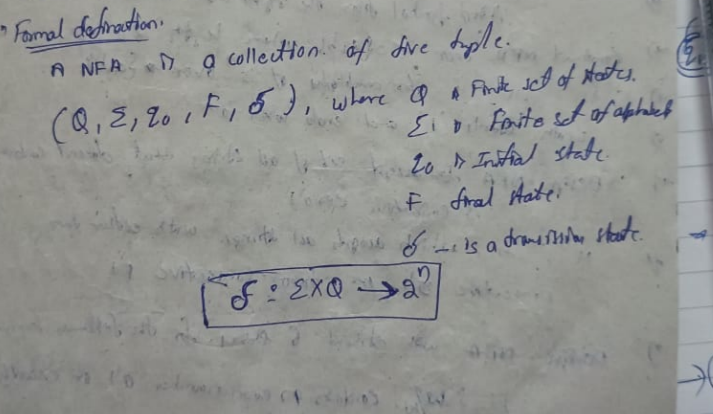 Formal defination.
A NFA is a collection of five tuple.
(Q, Σ, q0, F, δ), where Q is Finite set of states.
Σ is Finite set of alphabet
q0 is Initial state
F final state.
δ is a transition state.
δ : Σ×Q → 2^n